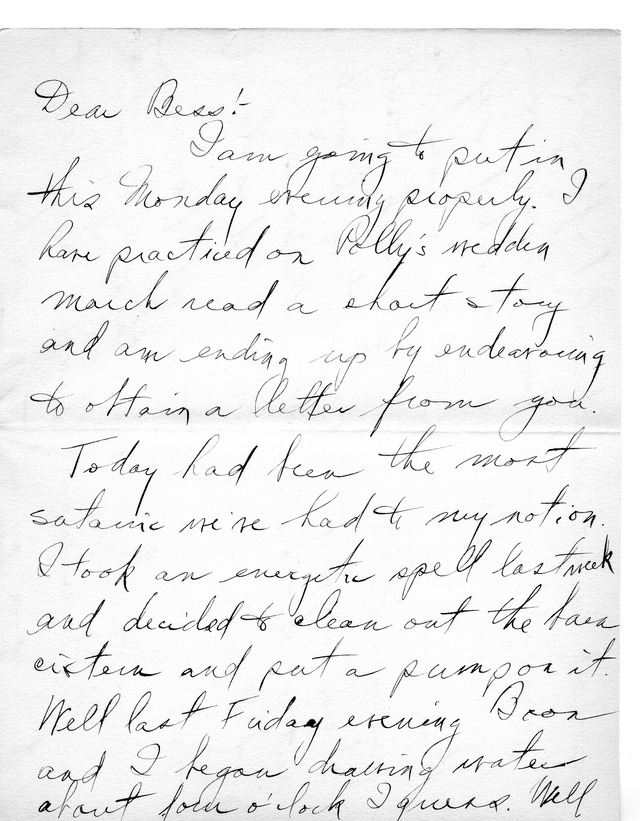 Dear Bess:-
I am going to put in
this Monday evening properly. I
have practiced on Polly's weddin
march read a short story
and am ending up by endeavoring
to obtain a letter from you.
Today had been the most
satanic we've had to my notion.
I took an energetic spell last week
and decided to clean out the barn
cistern and put a pump on it.
Well last Friday evening Boon
and I began drawing water
about four o'clock I guess. Well